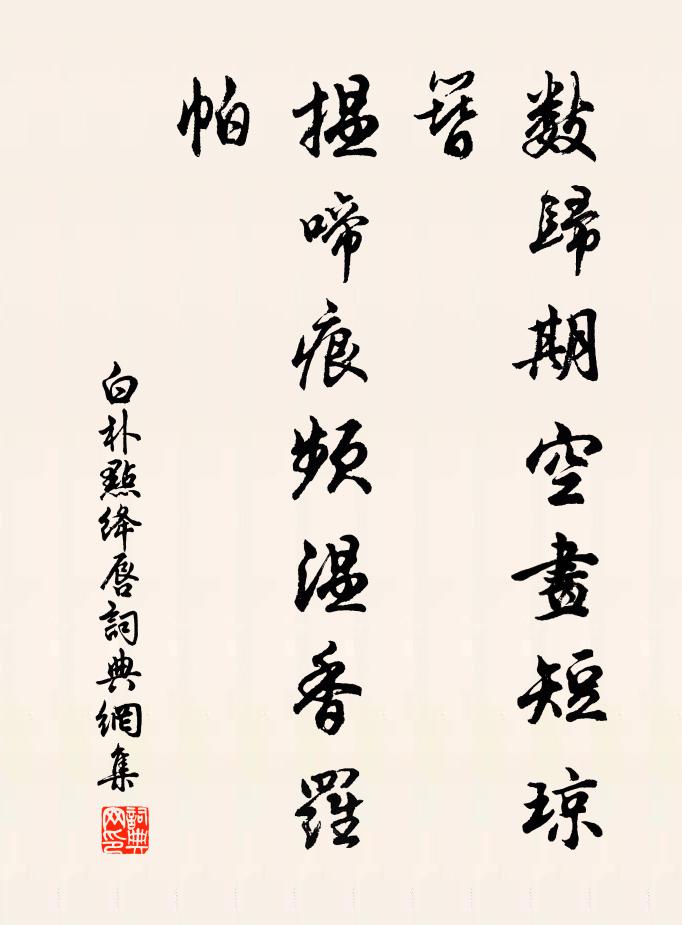 数歸期空畫短琼
簪
揾啼痕頻温香羅
帕
白朴點絳唇詞典網集
詞典
网印